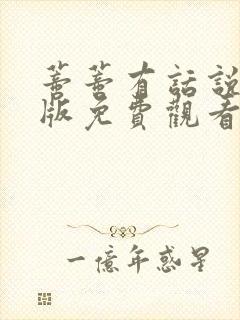 蔷蔷有話說
版免費觀看
一億年惑星